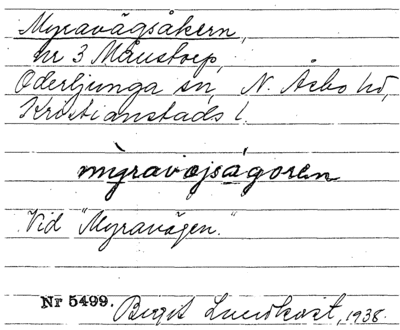 Myravägsåkern,
nr 3 Månstorp,
Oderljunga sn, N. Åsbo hd,
Kristianstads l.
mỳravɑjsågoren
Vid "Myravägen."
Nr 5499. Birgit Lundkvist, 1938.